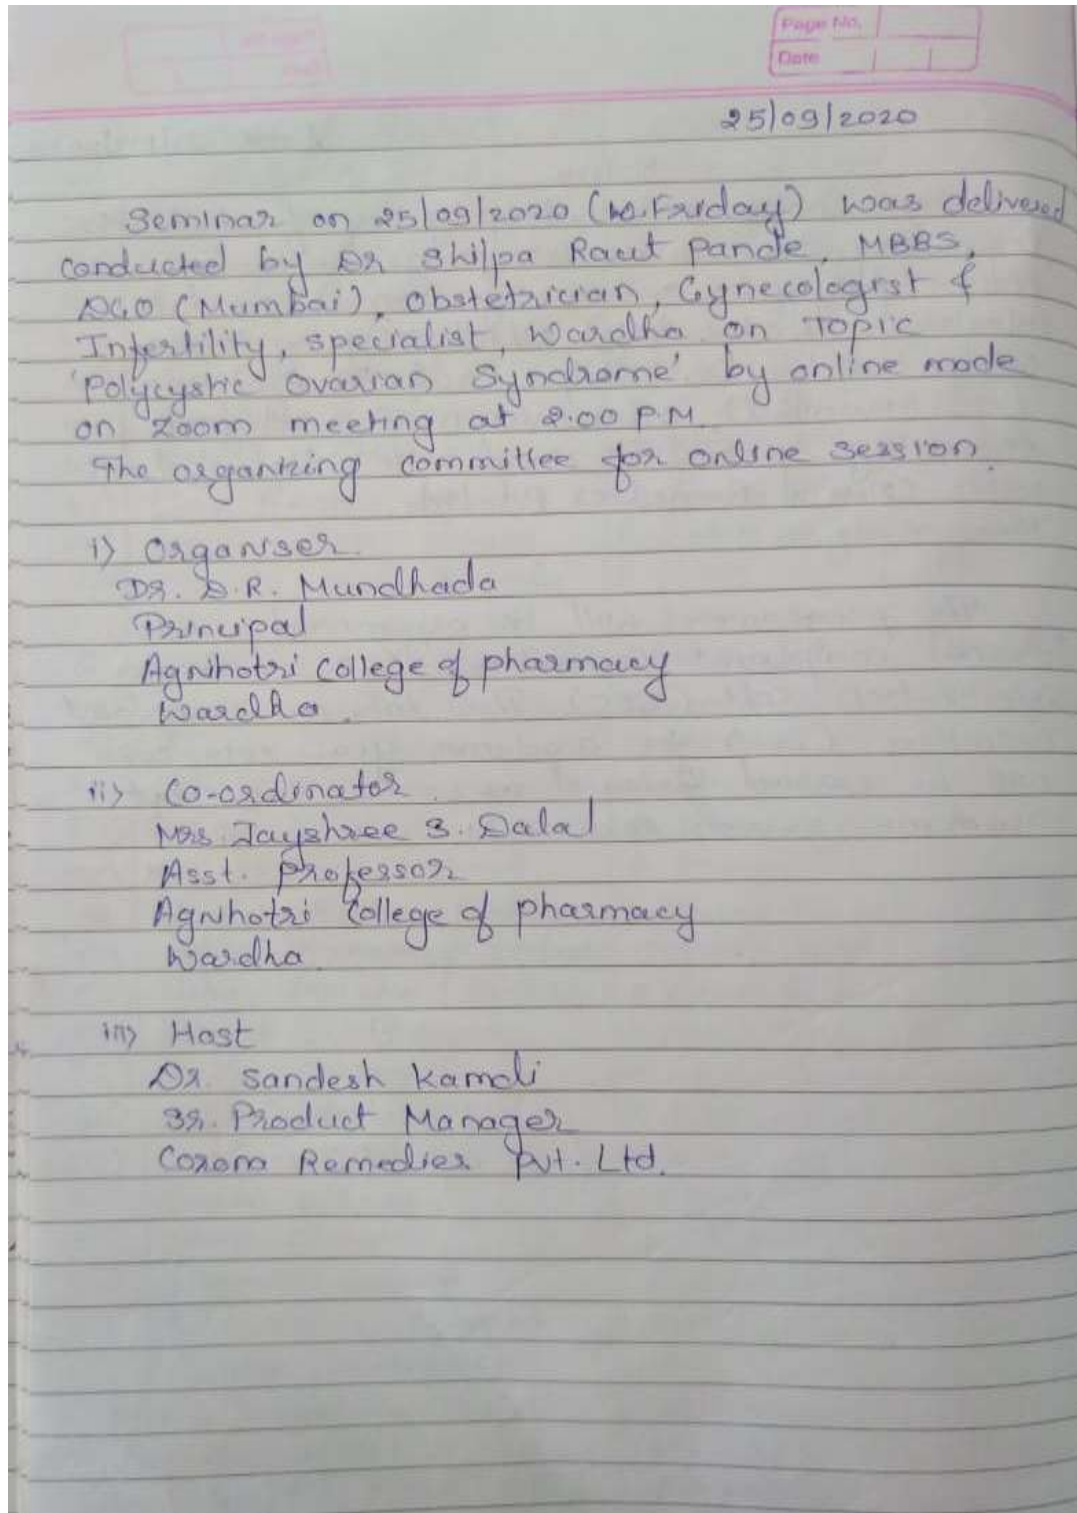 Page No.
Date
25/09/2020
Seminar on 25/09/2020 (Friday) was delivered
conducted by Dr Shilpa Raut Pande, MBBS,
DGO (Mumbai), Obstetrician, Gynecologist &
Infertility, specialist, Wardha on Topic
'Polycystic Ovarian Syndrome' by online mode
on Zoom meeting at 2.00 P.M.
The organizing committee for online session.
i) Organiser
Dr. D.R. Mundhada
Principal
Agnihotri College of pharmacy
Wardha.
ii) Co-ordinator.
Mrs. Jayshree S. Dalal
Asst. Professor
Agnihotri College of pharmacy
Wardha.
iii) Host
Dr. Sandesh Kamdi
Sr. Product Manager
Corona Remedies Pvt. Ltd.